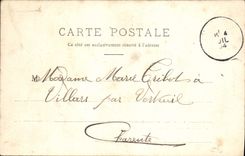 CARTE POSTALE
Ce côté est exclusivement réservé à l'adresse
Madame Marcel à
Villars par Verteuil
Charente